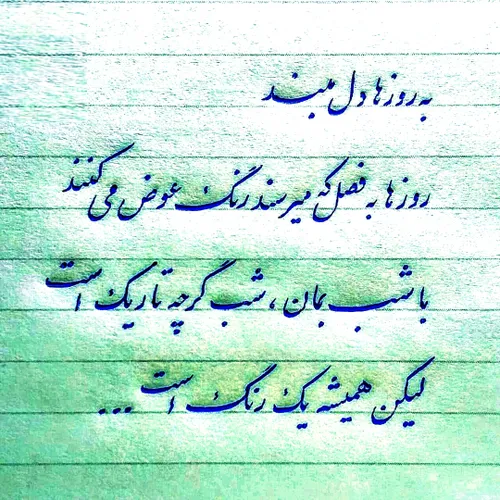 به روزها دل مبند
روزها به فصل که میرسند رنگ عوض می کنند
با شب بمان ، شب گرچه تاریک است
لیکن همیشه یک رنگ است ...